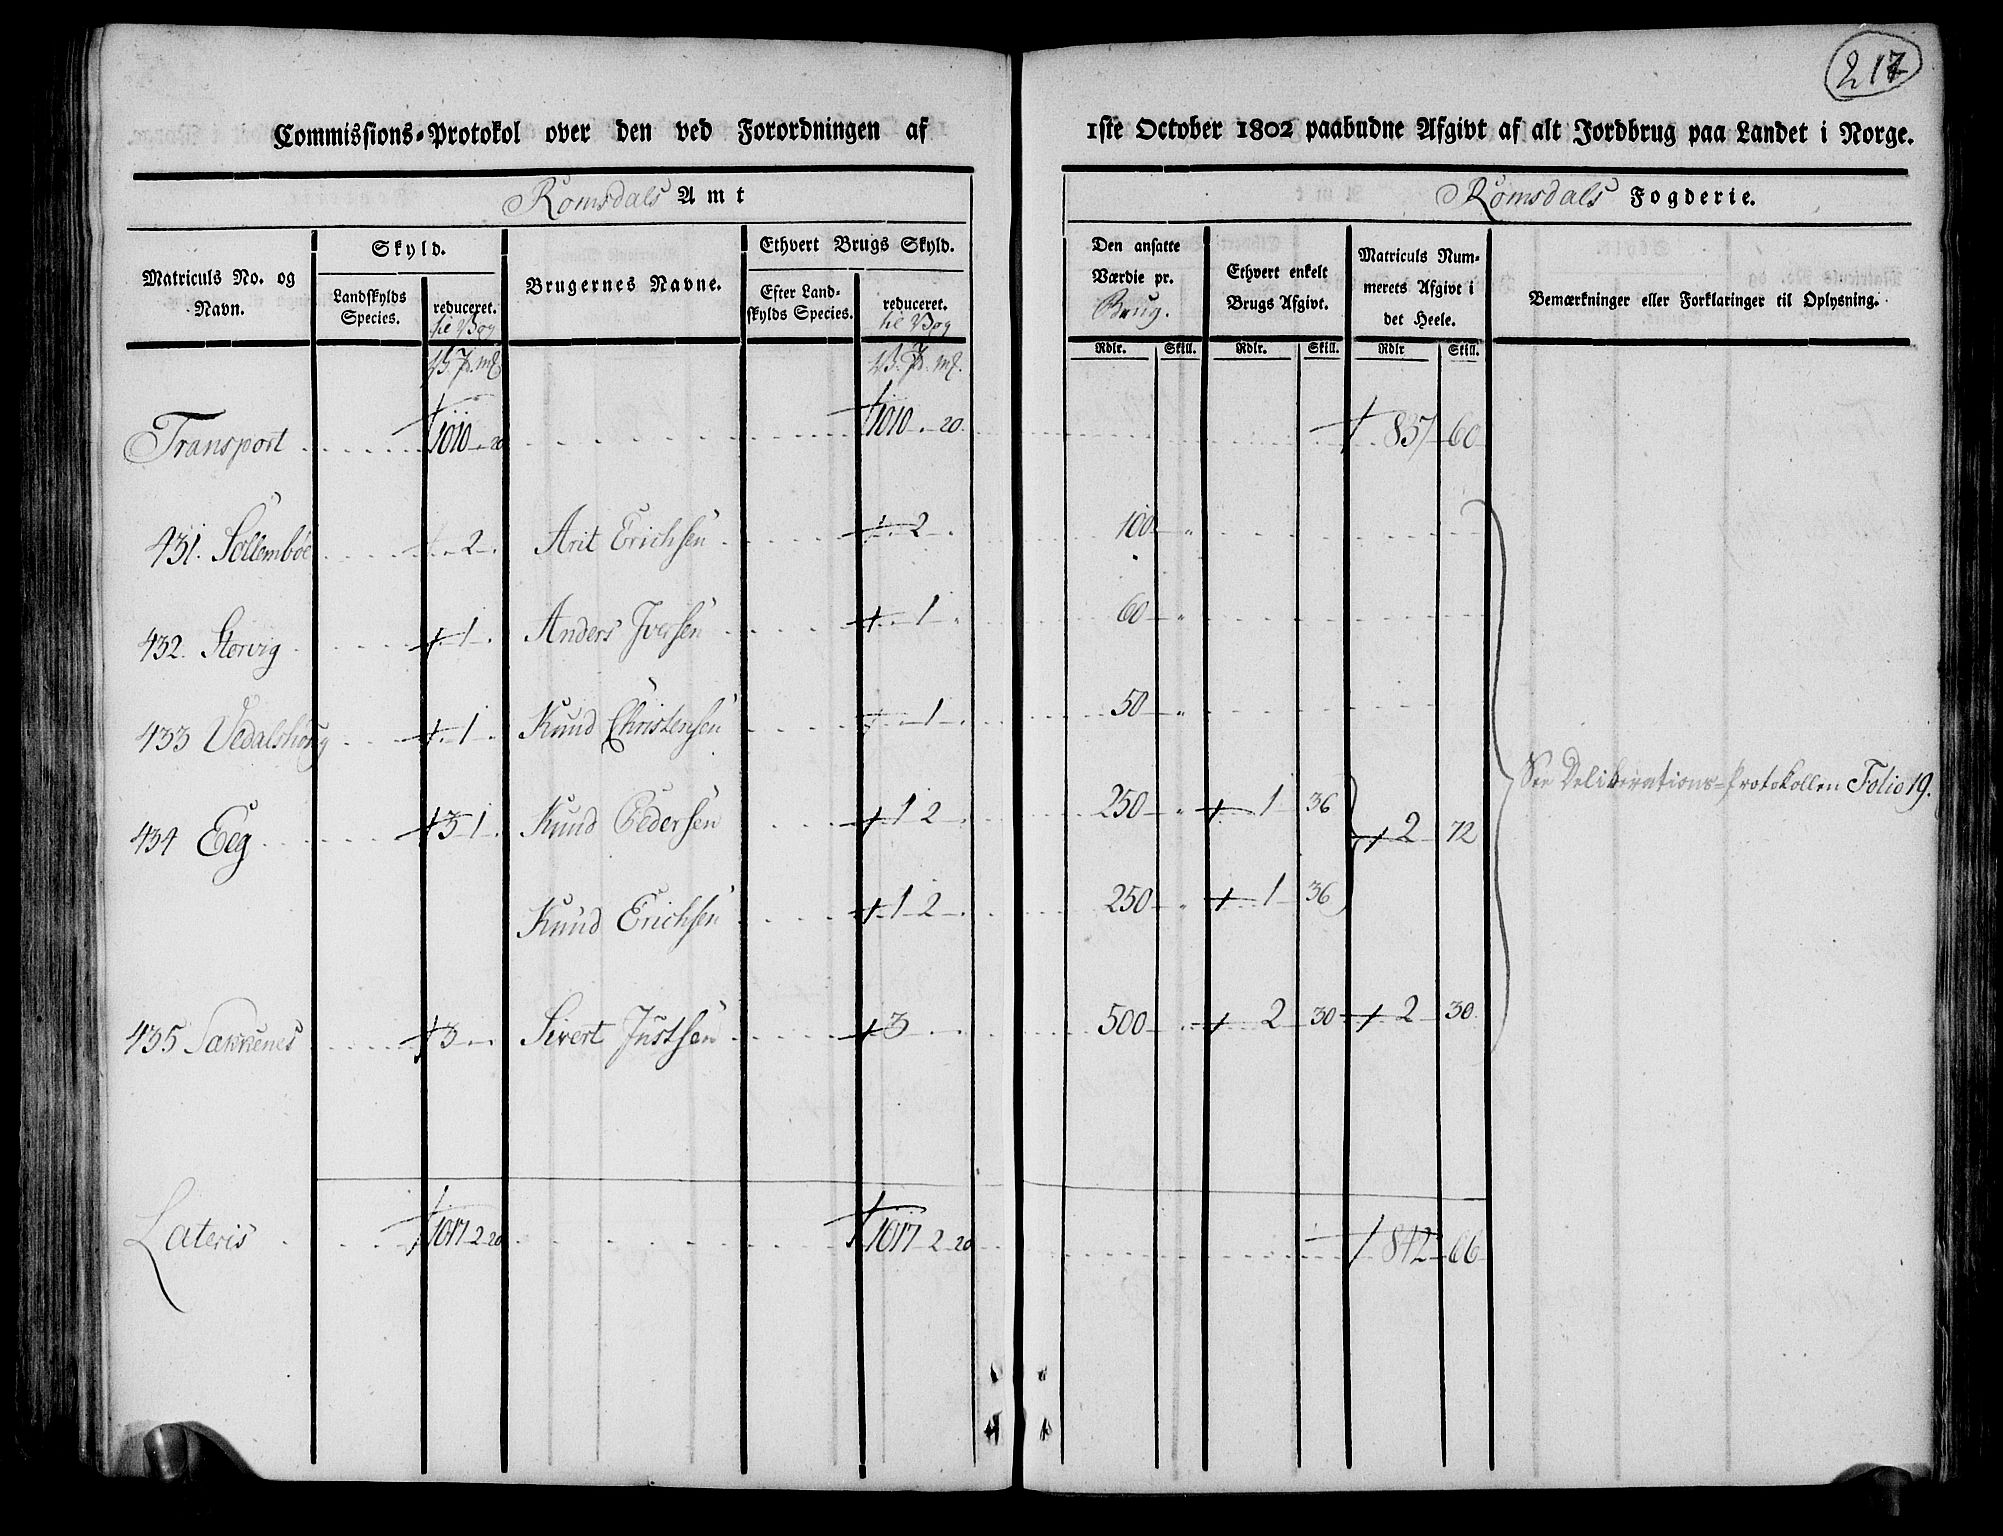 217
Commissions-Protokol over den ved Forordningen af 1ste October 1802 paabudne Afgivt af alt Jordbrug paa Landet i Norge.
Romsdals Amt Romsdals Fogderie.
Matriculs No. og Navn. Skyld. Landskylds Species. reduceret. til Vog Brugernes Navne. Ethvert Brugs Skyld. Efter Landskylds Species. reduceret. til Vog Den ansatte Værdie pr. Brug. Ethvert enkelt Brugs Afgivt. Matriculs Nummerets Afgivt i det Heele. Bemærkninger eller Forklaringer til Oplysning.
Rdlr. Skill. Rdlr. Skill. Rdlr Skill.
Transport 1010 - 20 1010 - 20 60
431. 2 Arit Erichsen 2 100
432. Storvig 1 Anders Iversen 1 60
433 1 Knud Christensen 1 50
434 Eeg 3 1 Knud Pedersen 1 2 250 1 36 2 72
Knud Erichsen 1 2 250 1 36
435 3 Sivert Justsen 3 500 2 30 2 30
See Deliberations-Protokollen Folio 19.
Lateris 1017 2 20 1017 2 20 842 66